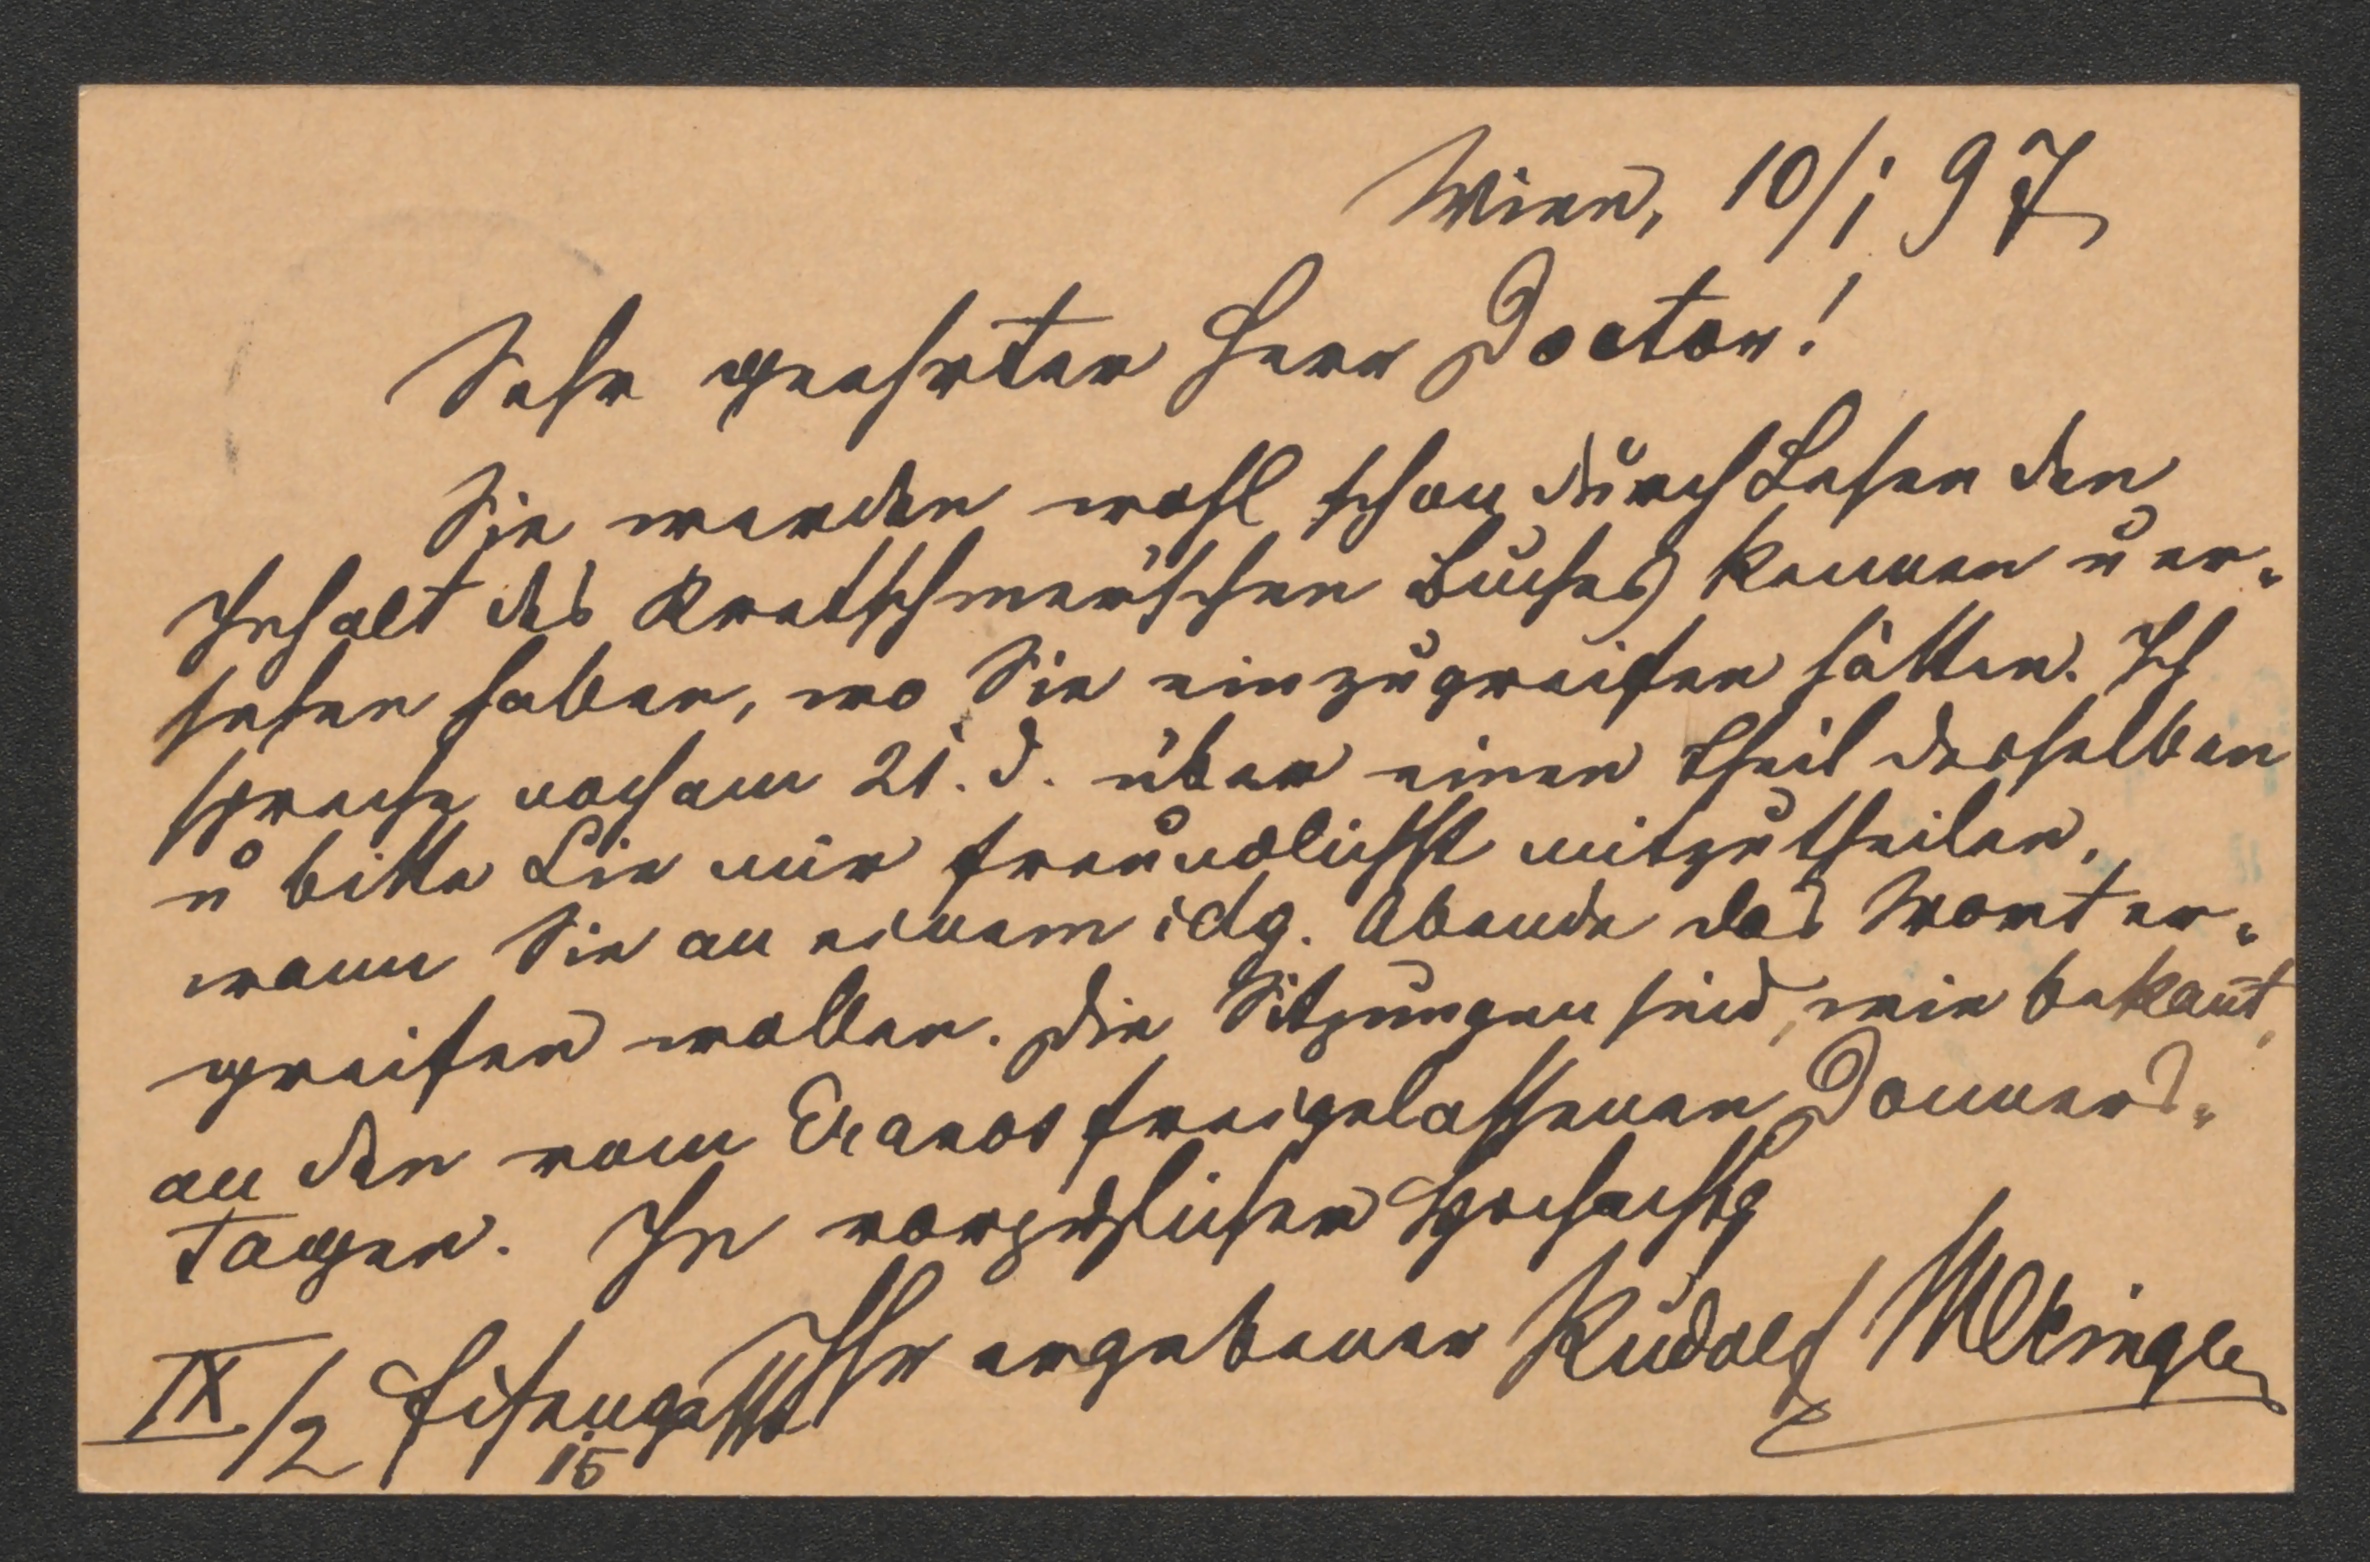 Wien, 10/I 97
Sehr geehrter Herr Doctor!
Sie werden wohl schon durch Lesen den
Inhalt des Kretschmer'schen Buches kennen u er-
sehen haben, wo Sie einzugreifen hätten. Ich
spreche noch am 21. d. über einen Theil desselben
u bitte Sie mir freundlichst mitzutheilen,
wann Sie an einem idg. Abende das Wort er-
greifen wollen. Die Sitzungen sind, wie bekannt,
an den vom Eranos freigelassenen Donners-
tagen. In vorzüglicher Hochachtg
Ihr ergebener Rudolf Meringer
IX/2 Eisengasse
15